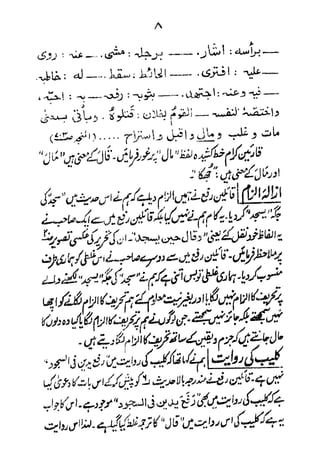 ۸
— برأسه : اشار . — برجله : مشی . — عنه : روی
— علیه : افتری . — الحائط : سقط . — له : خاطبه
— فیه وعنه : اجتهد . — بثوبه : رفعه — به : احبه ،
واختصه لنفسه — القوم بفلان : قتلوه . ویأتی بمعنی
مات و غلب و مال و اقبل و استراح ..... (المنجد
قارئین کرام خط کشیدہ لفظ "مال" پر غور فرمائیں۔ قال کے معنی ہیں "مال"
اور مال کے معنی ہیں: "جھکا"۔
ازالۂ الزام قائلین رفع نے ہمیں الزام دیا ہے کہ ہم نے اس حدیث میں "سجد" کی
جگہ "یسجد" کر دیا۔ یہ کام ہم نے نہیں کیا بلکہ قائلین رفع میں سے ایک صاحب نے
یہ الفاظ خود نقل کئے یعنی "وقال حین یسجد"۔ ان کی تحریر کی عکسی تصویر
پر ملاحظہ فرمائیں۔ قائلین رفع میں سے دوسرے صاحب نے اس غلطی کو ہماری طرف
منسوب کر دیا۔ ہماری غلطی تو بس اتنی ہے کہ ہم نے "سجد" کی جگہ "یسجد" لکھنے والے
پر تحریف کا الزام نہیں لگایا اور بغیر نیت معلوم کئے ہم تحریف کا الزام لگانے کو اچھا
نہیں سمجھتے بلکہ جائز نہیں سمجھتے۔ جن لوگوں نے ہم پر تحریف کا الزام لگایا کیا وہ دلوں کا
حال جانتے ہیں کہ جزم و یقین کے ساتھ تحریف کا الزام لگا دیتے ہیں۔
کلیب کی روایت ہم نے لکھا تھا کہ کلیب کی روایت میں "رفع یدین فی السجود"
نہیں ہے۔ قائلین رفع نے مندرجہ بالا حدیث کو پیش کر کے اس بات کا دعویٰ کیا
ہے کہ کلیب کی روایت میں بھی "رفع یدین فی السجود" موجود ہے۔ اس کا جواب
یہ ہے کہ کلیب کی اس روایت میں "قال" کا ترجمہ غلط کیا گیا ہے۔ لہذا اس روایت